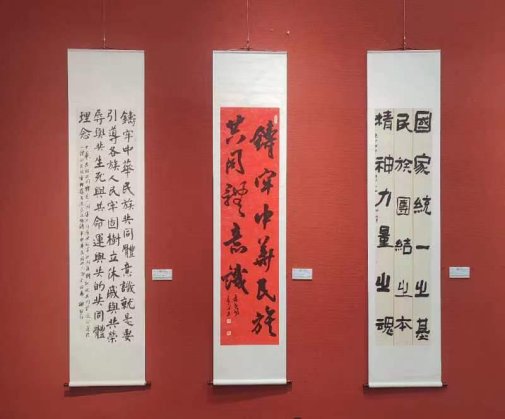 鑄牢中華民族共同體意識就是要
引導各族人民牢固樹立休戚與共榮
辱與共生死與共命運與共的共同體
理念
鑄牢中華民族
共同體意識
國家統一之基
民族團結之本
精神力量之魂